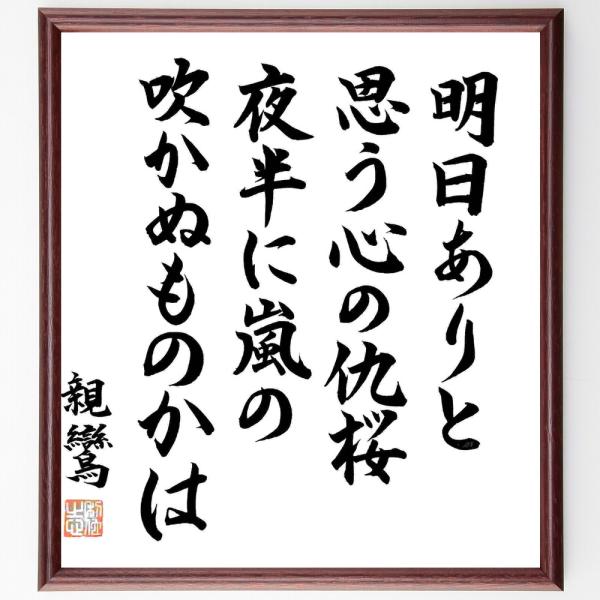 明日ありと
思う心の仇桜
夜半に嵐の
吹かぬものかは
親鸞